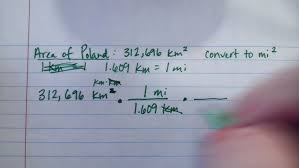 Area of Poland: 312,696 km² convert to mi²
1.609 km = 1 mi
km·km
312,696 km² · 1 mi / 1.609 km ·